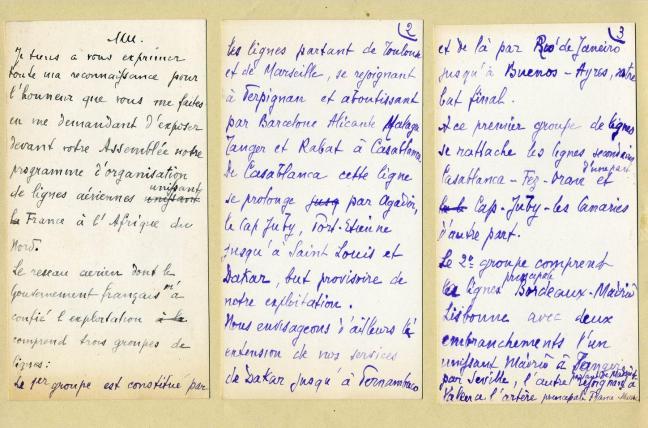 MM.
Je tiens à vous exprimer
toute ma reconnaissance pour
l'honneur que vous me faites
en me demandant d'exposer
devant votre Assemblée notre
programme d'organisation
de lignes aériennes unissant unissant
la France à l'Afrique du
Nord.
Le reseau aerien dont le
Gouvernement français m'a
confié l'exploitation à la
comprend trois groupes de
lignes:
Le 1er groupe est constitué par
2
les lignes partant de Toulouse
et de Marseille, se rejoignant
à Perpignan et aboutissant
par Barcelone Alicante Malaga
Tanger et Rabat à Casablanca
De Casablanca cette ligne
se prolonge jusq par Agadir,
le Cap Juby, Port-Etienne
jusqu'à Saint Louis et
Dakar, but provisoire de
notre exploitation.
Nous envisageons d'ailleurs l'
extension de nos services
de Dakar jusqu'à Pernambuco
3
et de là par Rio de Janeiro
jusqu'à Buenos-Ayres, notre
but final.
A ce premier groupe de lignes
se rattache les lignes secondaires
Casablanca-Fez-Oran d'une part et
Cap-Juby-les Canaries
d'autre part.
Le 2e groupe comprend
les lignes principale Bordeaux-Madrid
Lisbonne avec deux
embranchements l'un
unissant Madrid à Tanger
par Seville, l'autre rejoignant à
Valence l'artère principale France-Maroc